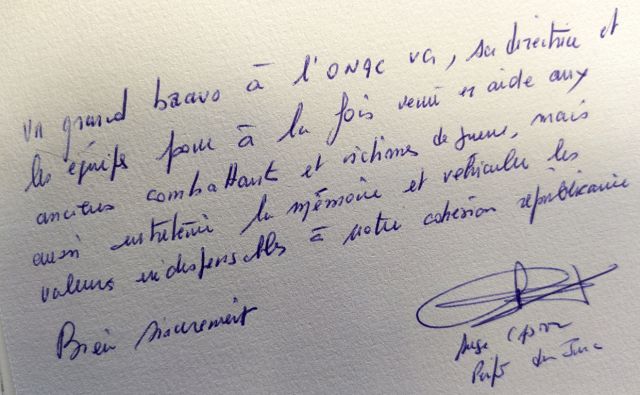 Un grand bravo à l'ONAC VG, sa directrice et
les équipes pour à la fois venir en aide aux
anciens combattant et victimes de guerre, mais
aussi entretenir la mémoire et véhiculer les
valeurs indispensables à notre cohésion républicaine
Bien sincèrement
Préfet du Jura